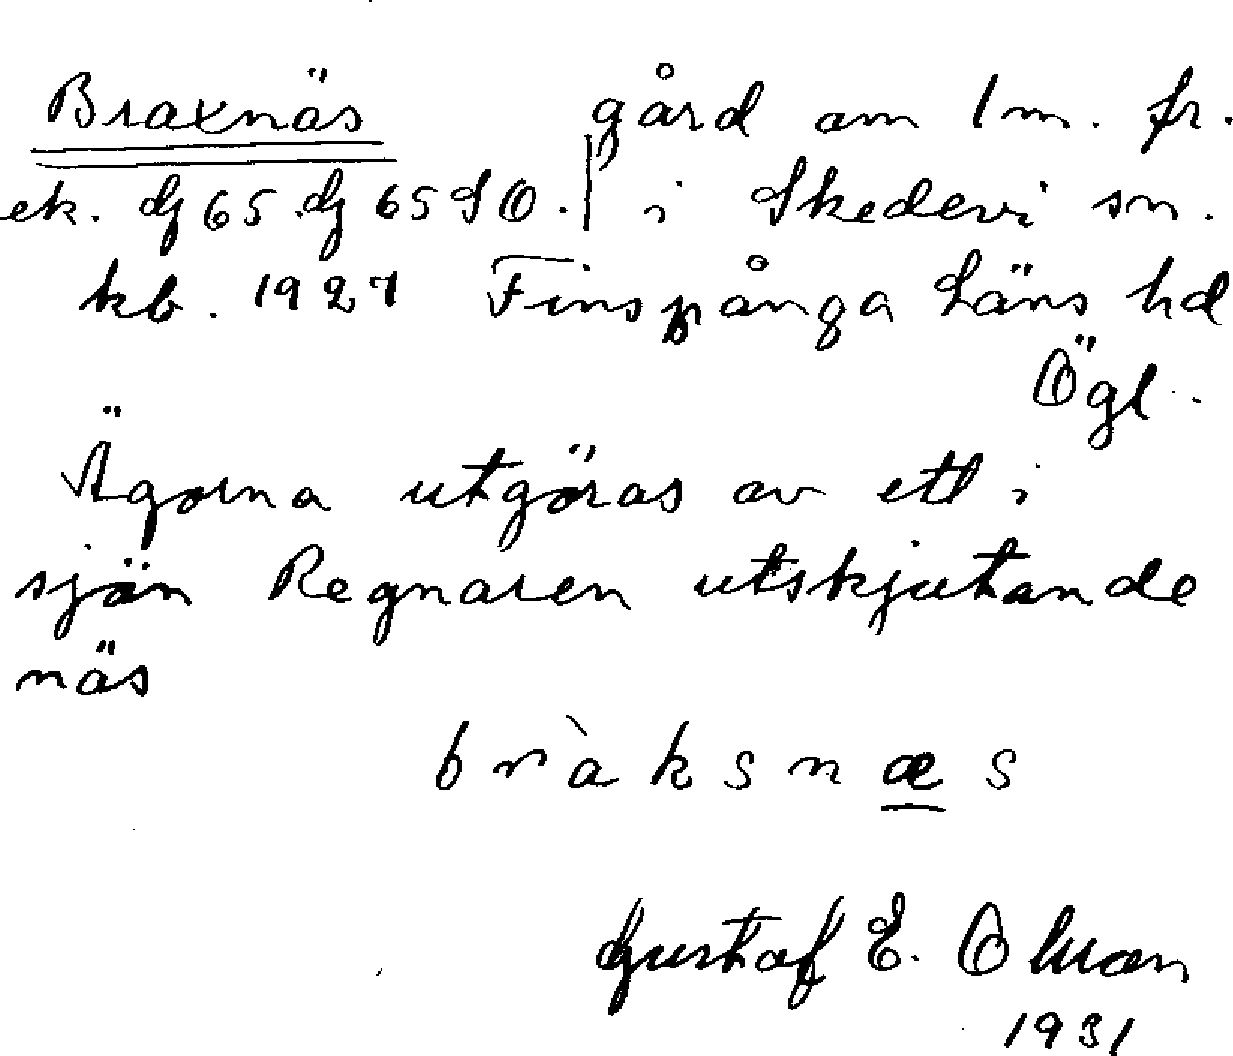 Braxnäs gård om 1 m. fr.
ek. G 65 G 65 SO. i Skedevi sn.
kb. 1927 Finspånga Läns hd
Ögl.
Ägorna utgöras av ett i
sjön Regnaren utskjutande
näs
bràksnæs
Gustaf E. Olson
1931